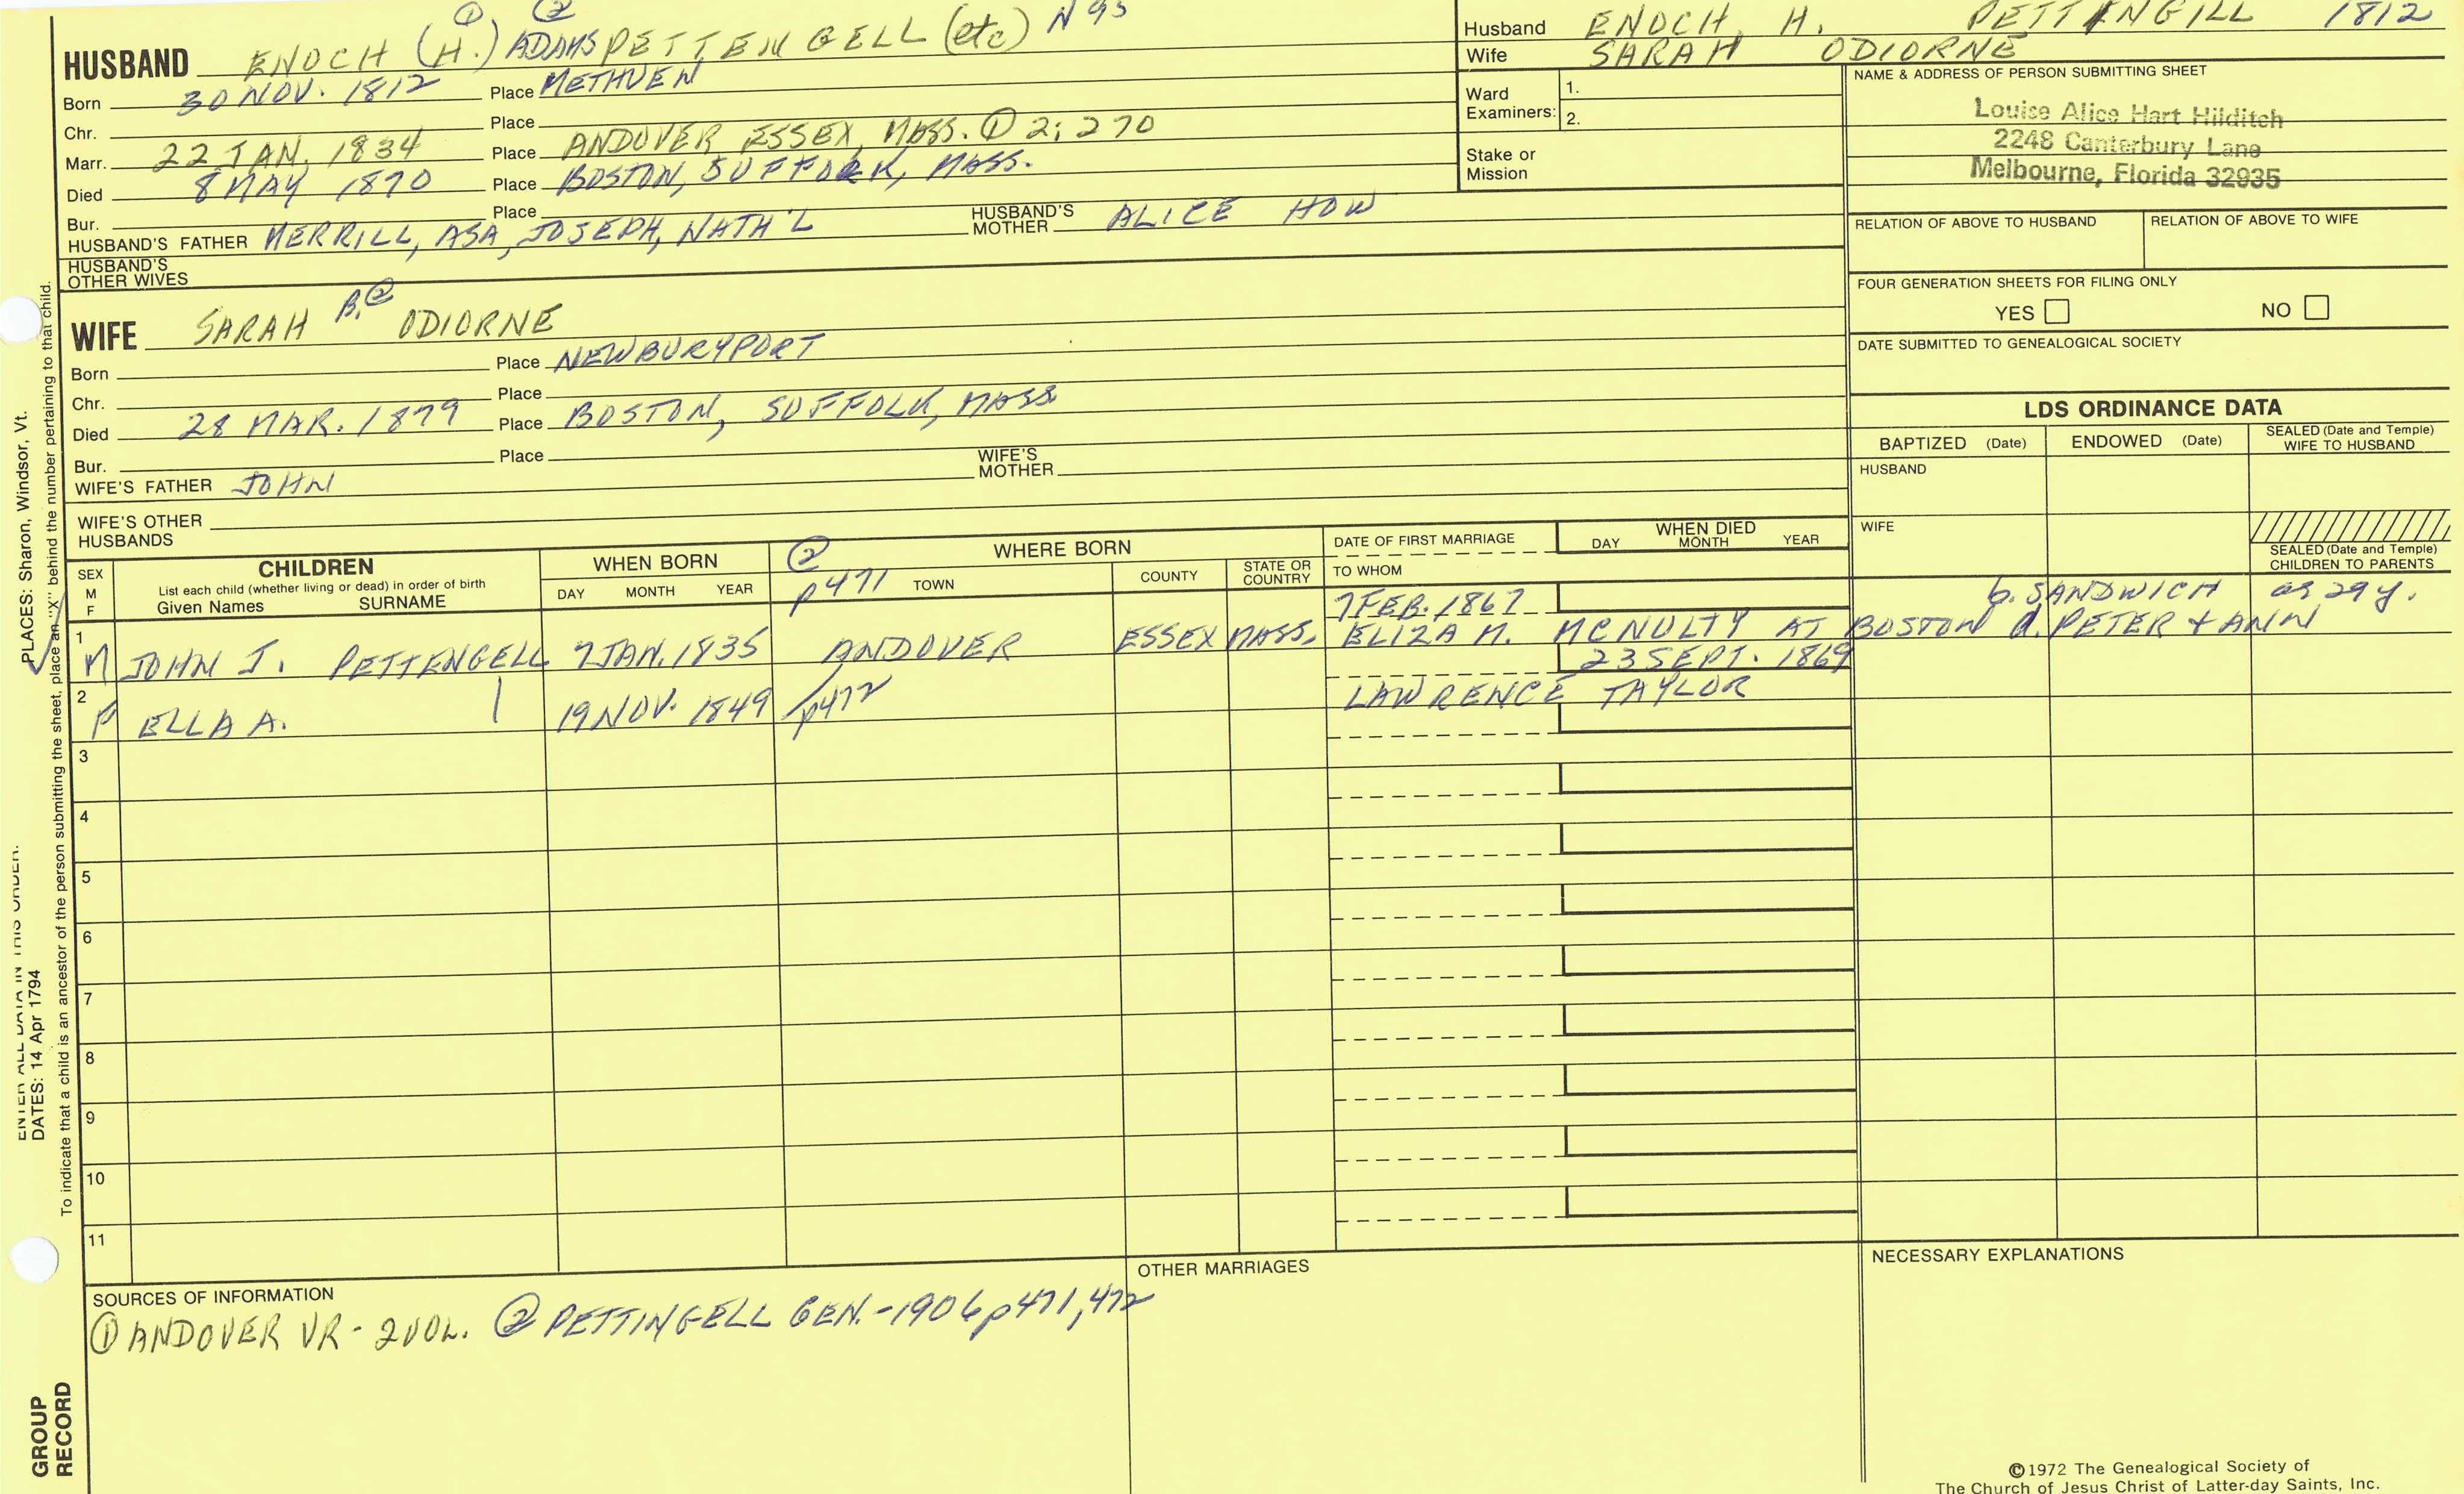 ① ② N 95
HUSBAND ENOCH (H.) ADAMS PETTENGELL (etc)
Born 30 NOV. 1812 Place METHUEN
Chr. Place
Marr. 22 JAN. 1834 Place ANDOVER ESSEX, MASS. ① 2; 270
Died 8 MAY 1870 Place BOSTON, SUFFOLK, MASS.
Bur. Place
HUSBAND'S FATHER MERRILL, ASA, JOSEPH, NATH'L HUSBAND'S MOTHER ALICE HOW
HUSBAND'S OTHER WIVES
WIFE SARAH B.② ODIORNE
Born Place NEWBURYPORT
Chr. Place
Died 28 MAR. 1879 Place BOSTON, SUFFOLK, MASS
Bur. Place
WIFE'S FATHER JOHN WIFE'S MOTHER
WIFE'S OTHER HUSBANDS
Husband ENOCH H. PETTINGILL 1812
Wife SARAH ODIORNE
Ward Examiners: 1.
2.
Stake or Mission
NAME & ADDRESS OF PERSON SUBMITTING SHEET
Louise Alice Hart Hilditch
2248 Canterbury Lane
Melbourne, Florida 32935
RELATION OF ABOVE TO HUSBAND RELATION OF ABOVE TO WIFE
FOUR GENERATION SHEETS FOR FILING ONLY
YES NO
DATE SUBMITTED TO GENEALOGICAL SOCIETY
LDS ORDINANCE DATA
BAPTIZED (Date) ENDOWED (Date) SEALED (Date and Temple) WIFE TO HUSBAND
HUSBAND
WIFE
SEALED (Date and Temple) CHILDREN TO PARENTS
SEX M F
CHILDREN
List each child (whether living or dead) in order of birth
Given Names SURNAME
WHEN BORN
DAY MONTH YEAR
② p471
WHERE BORN
TOWN COUNTY STATE OR COUNTRY
DATE OF FIRST MARRIAGE
TO WHOM
WHEN DIED
DAY MONTH YEAR
7 FEB. 1867 b. SANDWICH as 29 y.
1 M JOHN J. PETTENGELL 7 JAN. 1835 ANDOVER ESSEX MASS. ELIZA M. MCNULTY AT BOSTON d. PETER + ANN
23 SEPT. 1869
2 F ELLA A. 19 NOV. 1849 p472 LAWRENCE TAYLOR
3
4
5
6
7
8
9
10
11
SOURCES OF INFORMATION
① ANDOVER VR - 2 VOL. ② PETTINGELL GEN. - 1906 p471, 472
OTHER MARRIAGES
NECESSARY EXPLANATIONS
©1972 The Genealogical Society of
The Church of Jesus Christ of Latter-day Saints, Inc.
ENTER ALL DATA IN THIS ORDER.
PLACES: Sharon, Windsor, Vt.
DATES: 14 Apr 1794
To indicate that a child is an ancestor of the person submitting the sheet, place an "X" behind the number pertaining to that child.
GROUP
RECORD